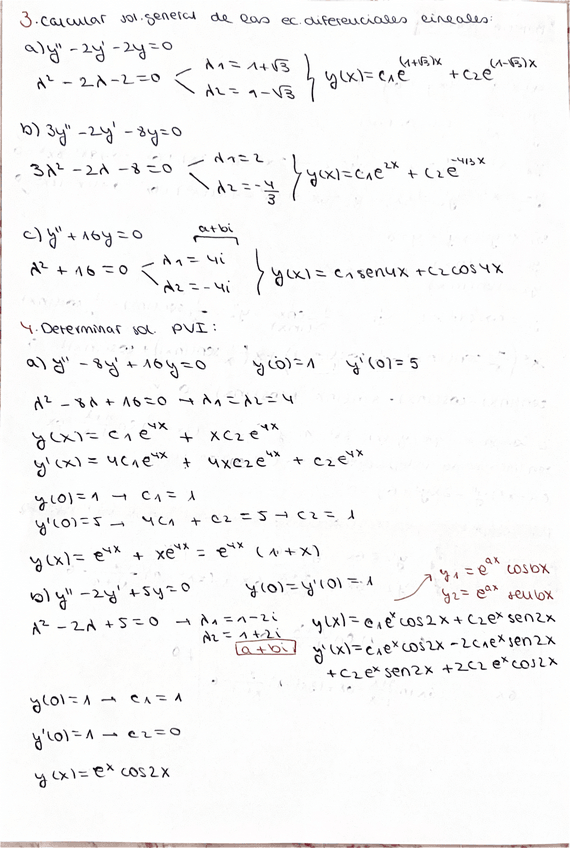 3. Calcular sol. general de las ec. diferenciales lineales:
a) y'' - 2y' - 2y = 0
λ² - 2λ - 2 = 0 λ1 = 1+√3 λ2 = 1-√3 } y(x) = c1e^(1+√3)x + c2e^(1-√3)x
b) 3y'' - 2y' - 8y = 0
3λ² - 2λ - 8 = 0 λ1 = 2 λ2 = -4/3 } y(x) = c1e^2x + c2e^-4/3x
c) y'' + 16y = 0 a+bi
λ² + 16 = 0 λ1 = 4i λ2 = -4i } y(x) = c1 sen4x + c2 cos4x
4. Determinar sol. PVI:
a) y'' - 8y' + 16y = 0 y(0) = 1 y'(0) = 5
λ² - 8λ + 16 = 0 → λ1 = λ2 = 4
y(x) = c1e^4x + xc2e^4x
y'(x) = 4c1e^4x + 4xc2e^4x + c2e^4x
y(0) = 1 → c1 = 1
y'(0) = 5 → 4c1 + c2 = 5 → c2 = 1
y(x) = e^4x + xe^4x = e^4x (1+x)
b) y'' - 2y' + 5y = 0 y(0) = y'(0) = 1
y1 = e^ax cosbx
y2 = e^ax senbx
λ² - 2λ + 5 = 0 → λ1 = 1-2i
λ2 = 1+2i
a+bi
y(x) = c1e^x cos2x + c2e^x sen2x
y'(x) = c1e^x cos2x - 2c1e^x sen2x
+ c2e^x sen2x + 2c2e^x cos2x
y(0) = 1 → c1 = 1
y'(0) = 1 → c2 = 0
y(x) = e^x cos2x